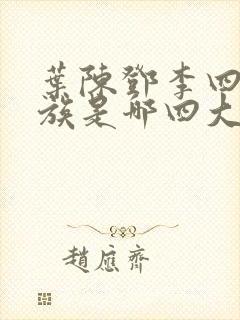 葉陳鄧李四
族是哪四大
趙應齊